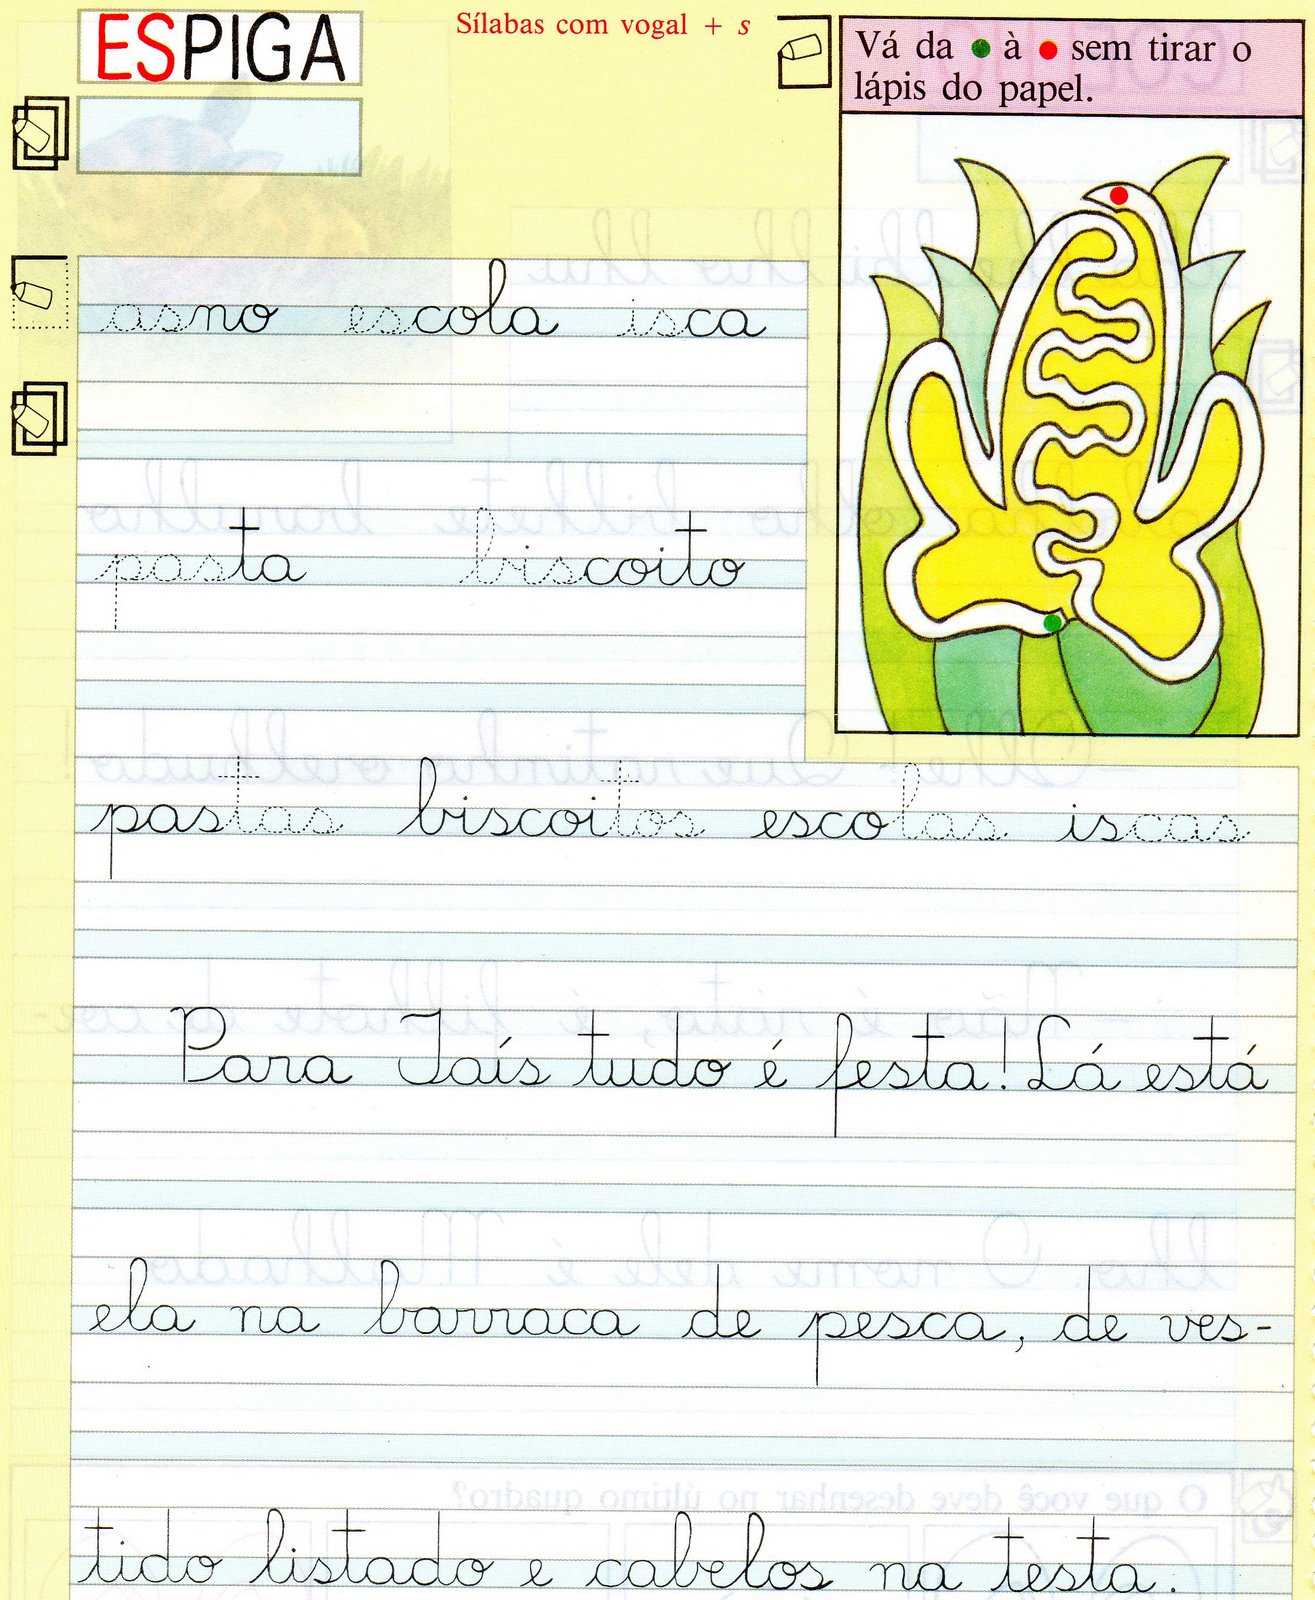 ESPIGA
Sílabas com vogal + s
Vá da à sem tirar o
lápis do papel.
asno escola isca
pasta biscoito
pastas biscoitos escolas iscas
Para Taís tudo é festa! Lá está
ela na barraca de pesca, de ves-
tido listado e cabelos na testa.